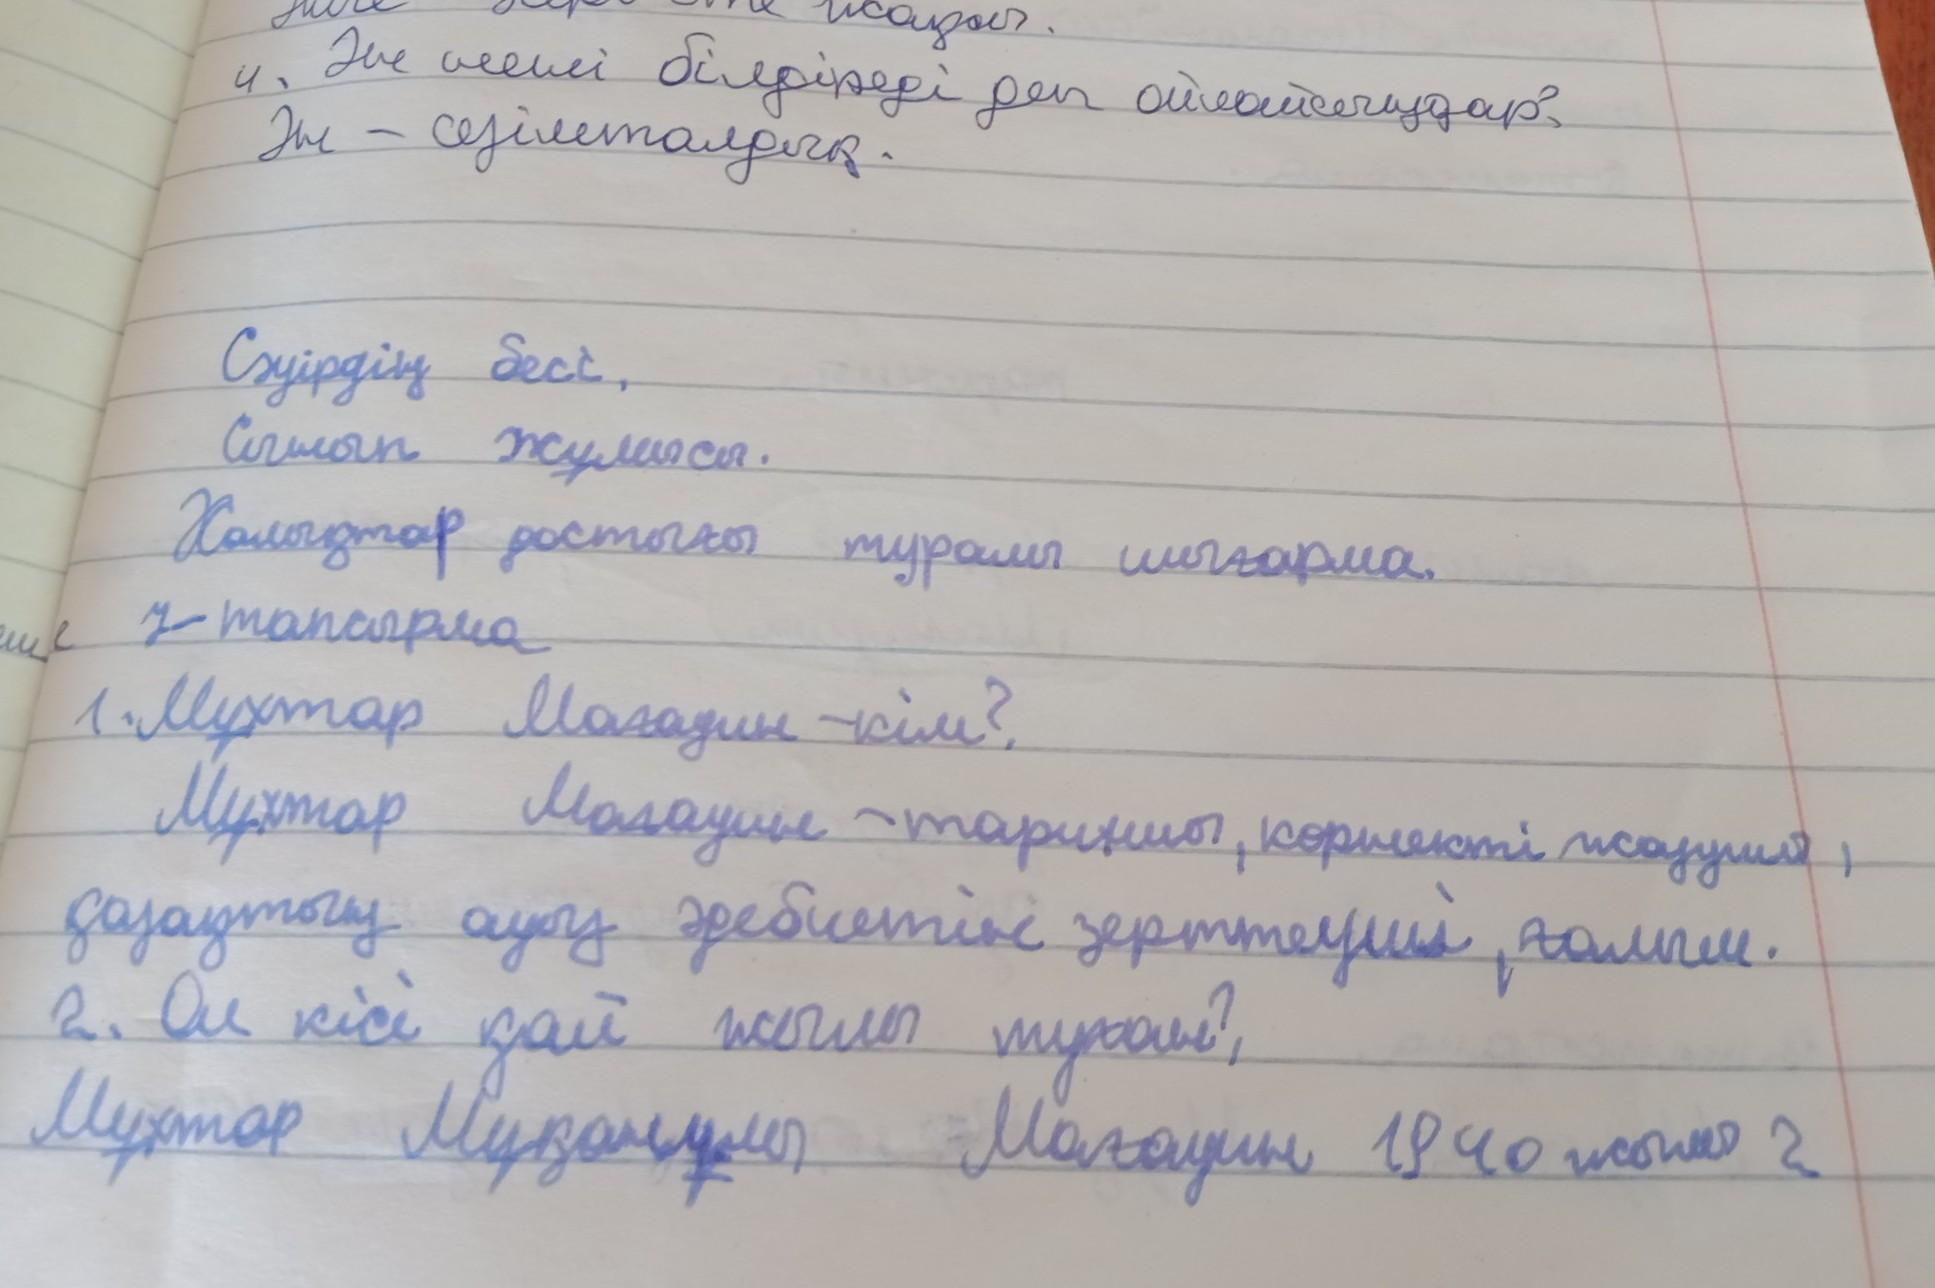 жазды.
4. Ән нені білдіреді деп ойлайсыздар?
Ән – сезімталдық.
Сәуірдің бесі.
Сынып жұмысы.
Халықтар достығы туралы шығарма.
7-тапсырма
1. Мұхтар Мағауин – кім?
Мұхтар Мағауин – тарихшы, көрнекті жазушы,
қазақтың ауыз әдебиетін зерттеуші, ғалым.
2. Ол кісі қай жылы туған?
Мұхтар Мұқанұлы Мағауин 1940 жылы 2